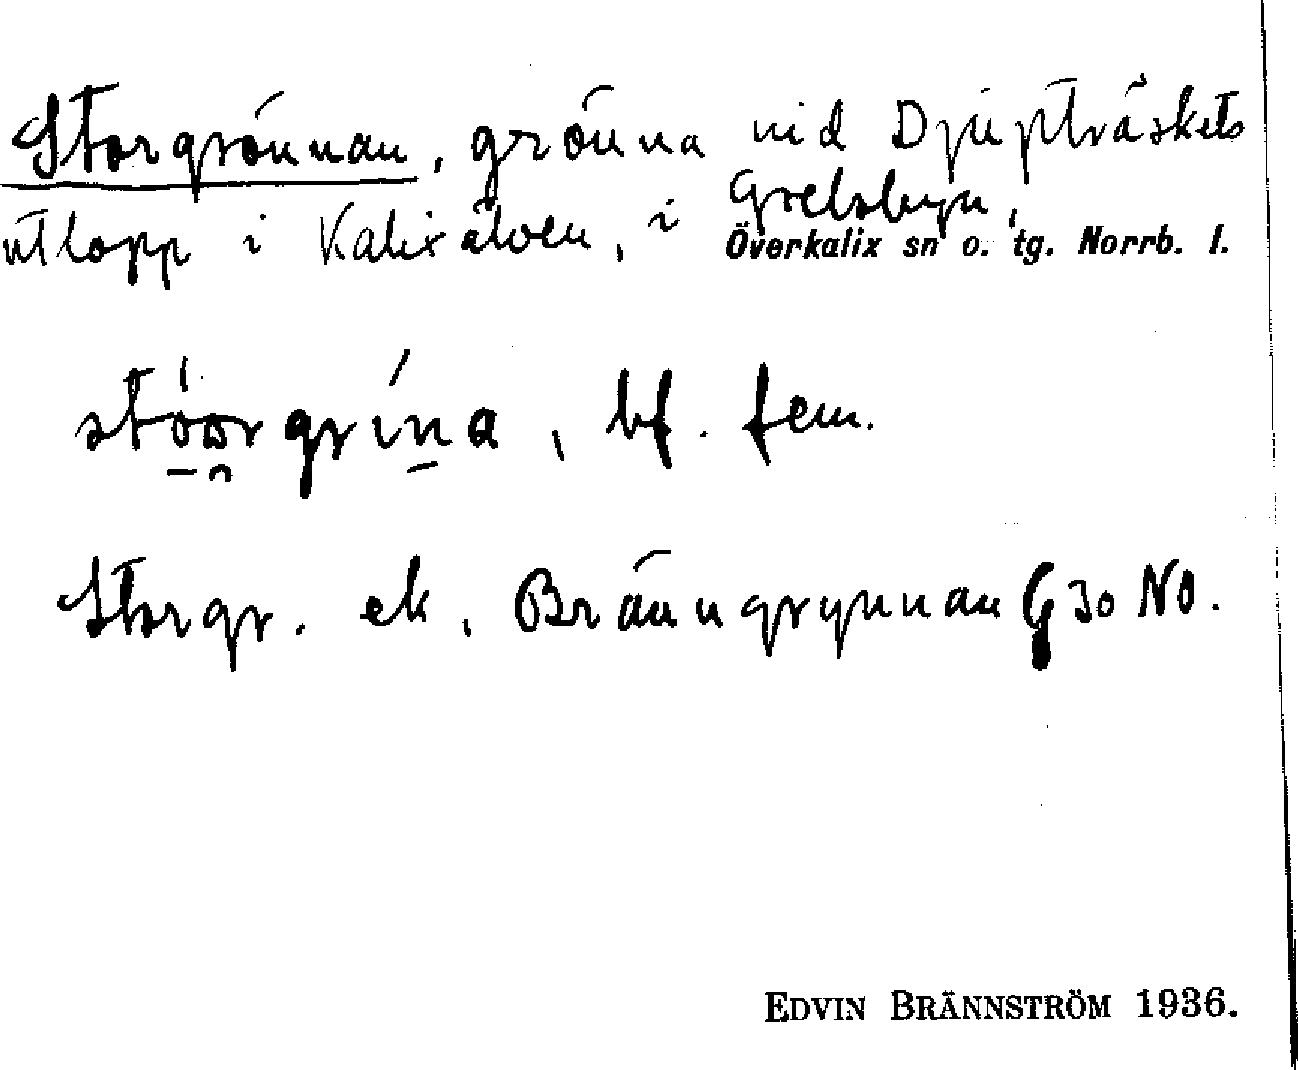 Storgrönnan, grönna vid Djupträskets
utlopp i Kalixälven, i Grelsbyn,
Överkalix sn o. tg. Norrb. l.
bf. fem.
Storgr. ek. Bränngrynnan G 30 NO.
EDVIN BRÄNNSTRÖM 1936.